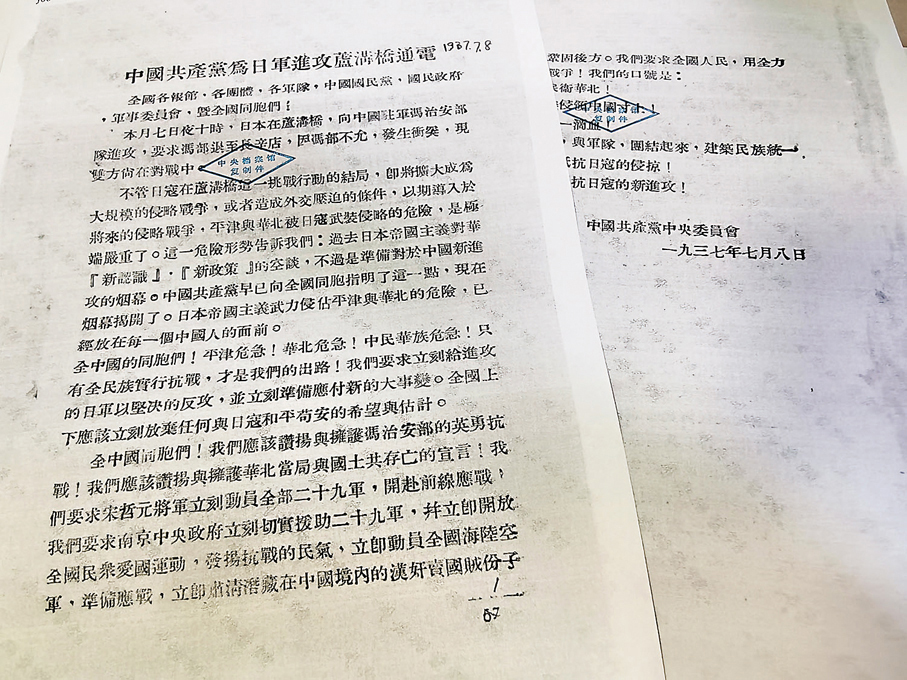 1937.7.8
中國共產黨爲日軍進攻蘆溝橋通電
全國各報館，各團體，各軍隊，中國國民黨，國民政府
，軍事委員會，暨全國同胞們！
本月七日夜十時，日本在蘆溝橋，向中國駐軍馮治安部
隊進攻，要求馮部退至長辛店，因馮部不允，發生衝突，現
雙方尚在對戰中。
中央檔案馆
复制件
不管日寇在蘆溝橋這一挑戰行動的結局，卽將擴大成爲
大規模的侵略戰爭，或者造成外交壓迫的條件，以期導入於
將來的侵略戰爭，平津與華北被日寇武裝侵略的危險，是極
端嚴重了。這一危險形勢告訴我們：過去日本帝國主義對華
『新認識』，『新政策』的空談，不過是準備對於中國新進
攻的烟幕。中國共產黨早已向全國同胞指明了這一點，現在
烟幕揭開了。日本帝國主義武力侵佔平津與華北的危險，已
經放在每一個中國人的面前。
全中國的同胞們！平津危急！華北危急！中民華族危急！只
有全民族實行抗戰，才是我們的出路！我們要求立刻給進攻
的日軍以堅决的反攻，並立刻準備應付新的大事變。全國上
下應該立刻放棄任何與日寇和平苟安的希望與估計。
全中國同胞們！我們應該讚揚與擁護馮治安部的英勇抗
戰！我們應該讚揚與擁護華北當局與國土共存亡的宣言！我
們要求宋哲元將軍立刻動員全部二十九軍，開赴前線應戰，
我們要求南京中央政府立刻切實援助二十九軍，幷立卽開放
全國民衆愛國運動，發揚抗戰的民氣，立卽動員全國海陸空
軍，準備應戰，立卽肅清潛藏在中國境內的漢奸賣國賊份子
1
67
鞏固後方。我們要求全國人民，用全力
戰爭！我們的口號是：
衛華北！
侵領中國寸土！
一滴血！
复制件
，與軍隊，團結起來，建築民族統一
抵抗日寇的侵掠！
抗日寇的新進攻！
中國共產黨中央委員會
一九三七年七月八日